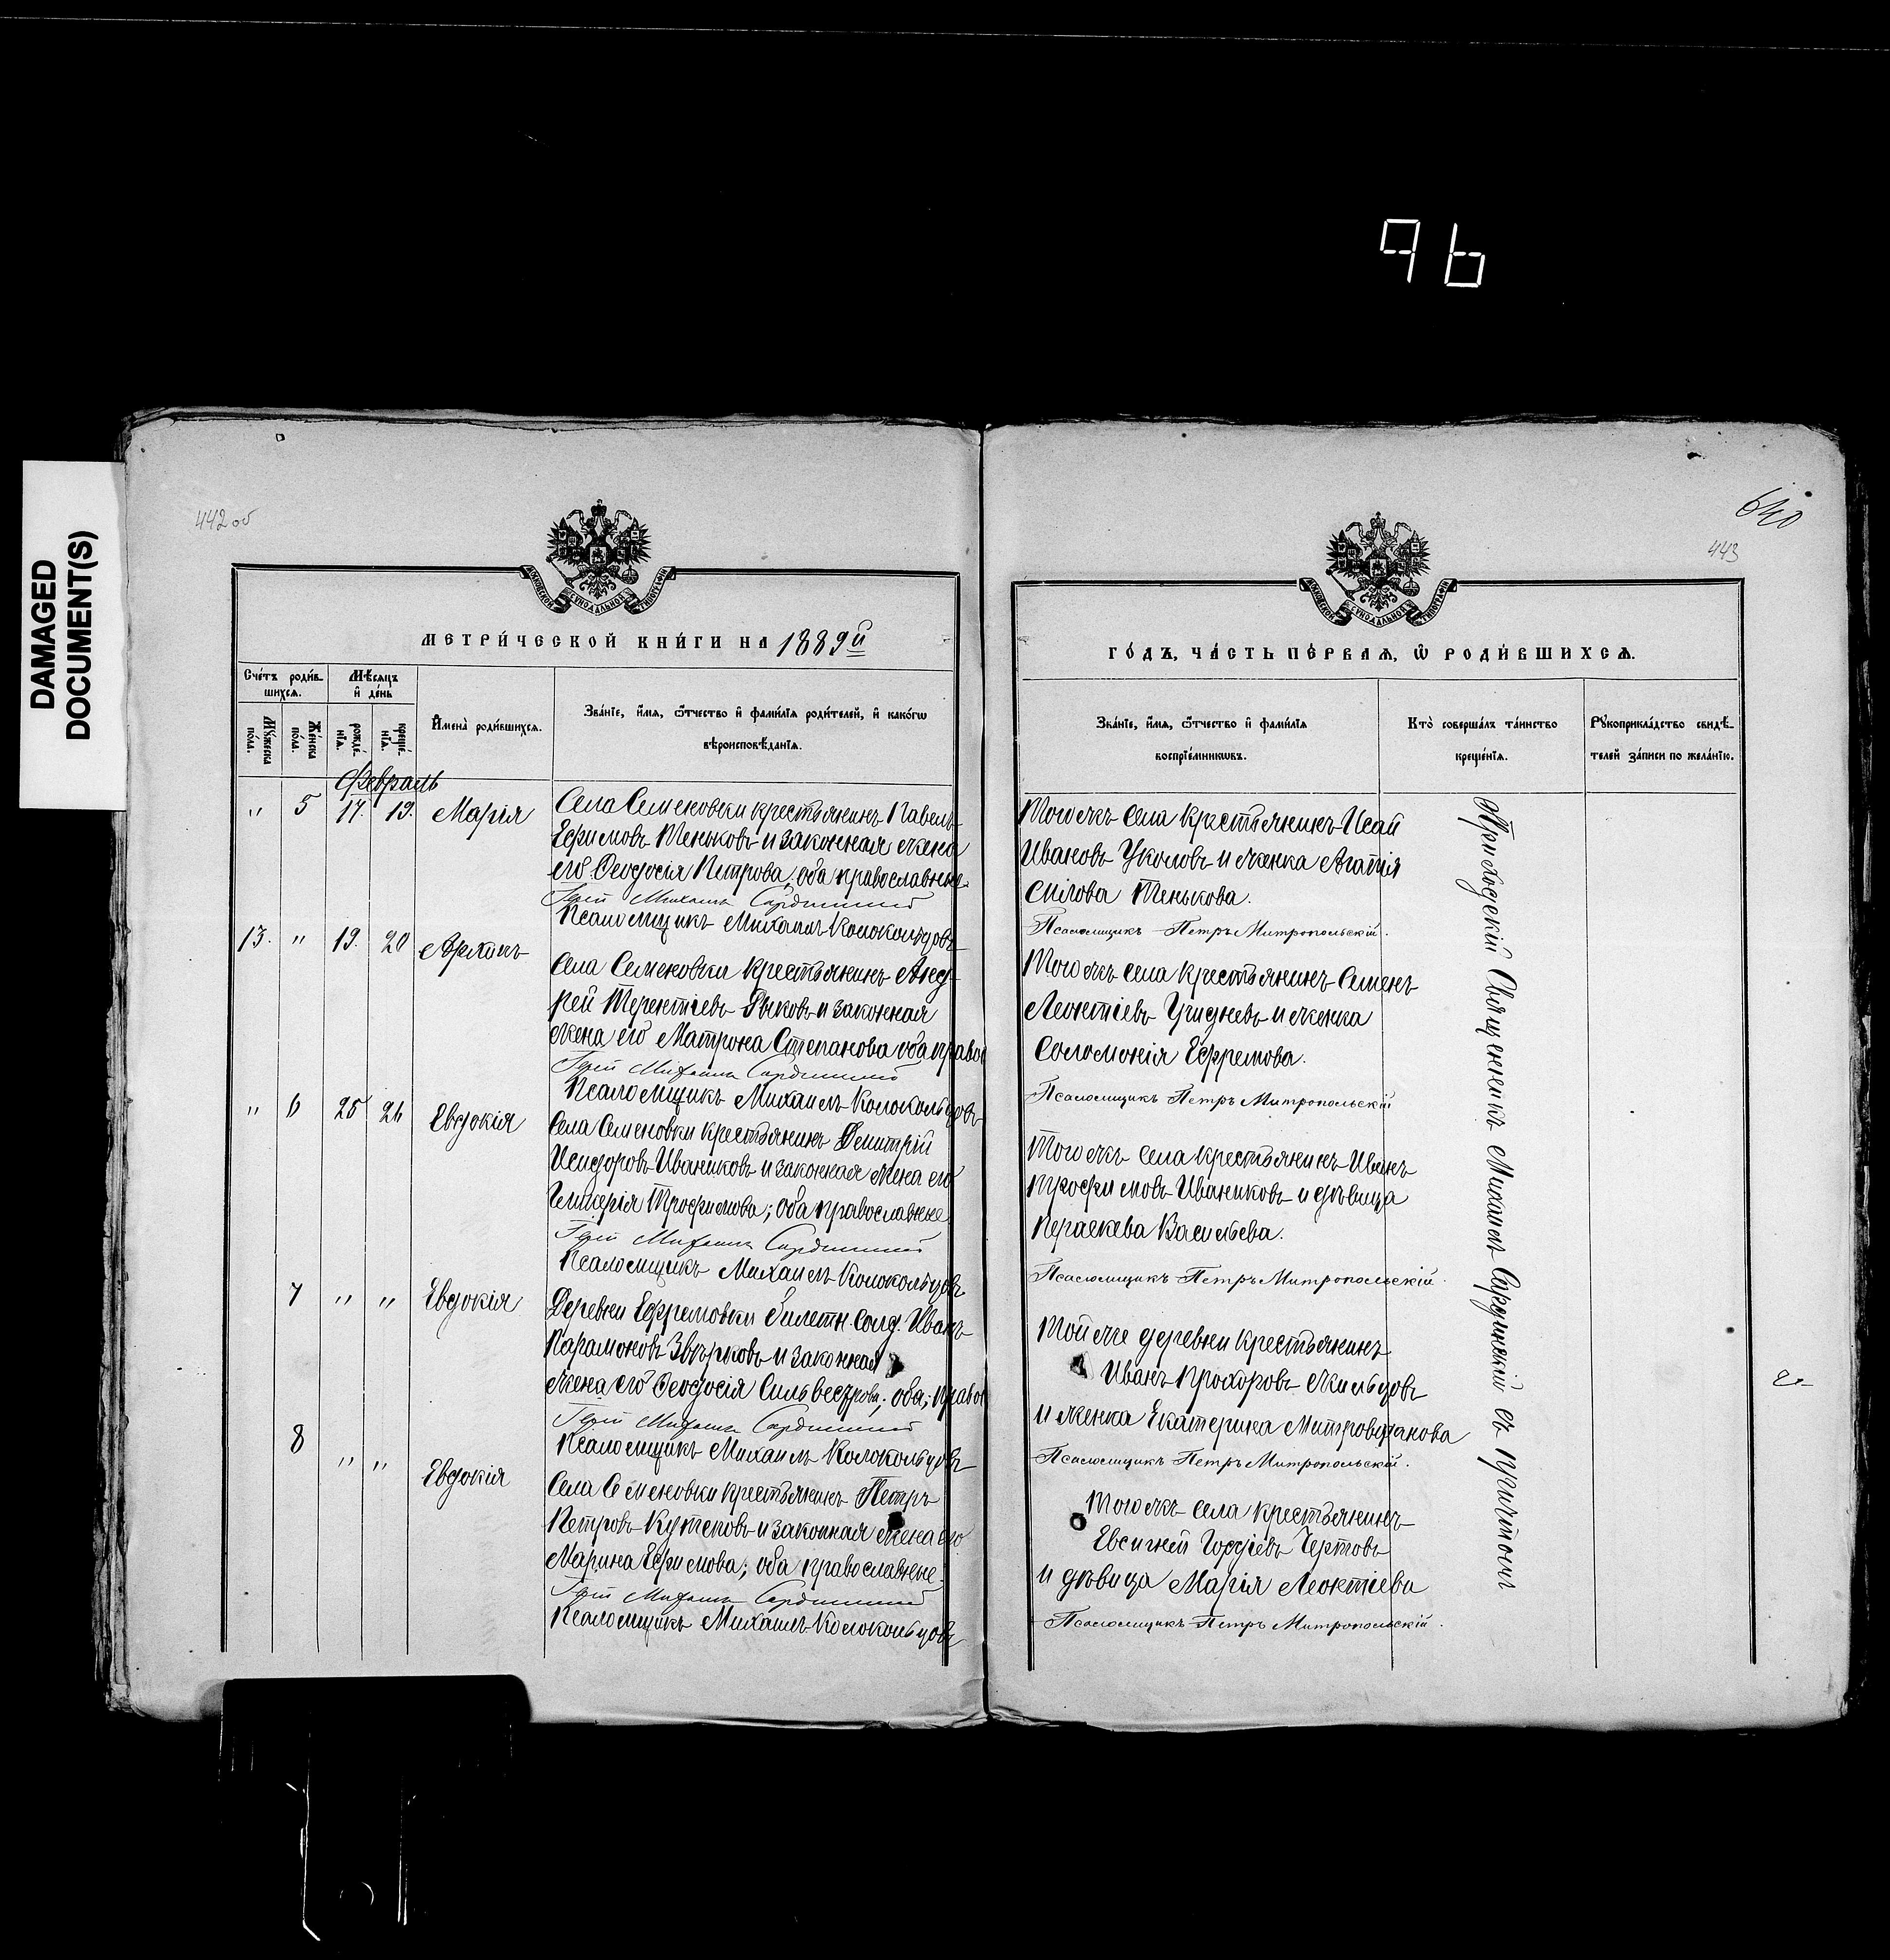 96
DAMAGED
DOCUMENT(S)
442 об
МЕТРИ́ЧЕСКОЙ КНИ́ГИ НА 1889й
Сче́тъ роди́в-
шихсѧ.
Мѣ́сѧцъ
и҆ де́нь
Мꙋ́жеска
по́ла.
Же́нска
по́ла.
рожде́-
нїѧ.
креще́-
нїѧ.
И҆мена̀ роди́вшихсѧ.
Зва́нїе, и҆́мѧ, ѻ҆́тчество и҆ фами́лїѧ роди́телей, и҆ како́гѡ
вѣроисповѣ́данїѧ.
Февраль
" 5 17. 19. Марія
Села Семеновки крестьянинъ Павелъ
Ефимовъ Теньковъ и законная жена
его Ѳеодосія Петрова, оба православные
Іерей Михаилъ
Псаломщикъ Михаилъ Колокольцовъ
13. " 19. 20
Села Семеновки крестьянинъ Анд-
рей Терентіевъ Зыковъ и законная
жена его Матрона Степанова оба правос
Іерей Михаилъ
Псаломщикъ Михаилъ Колокольцовъ
" 6 25 26 Евдокія
Села Семеновки крестьянинъ Димитрій
Исидоровъ Иваниковъ и законная жена его
Трофимова; оба православные
Іерей Михаилъ
Псаломщикъ Михаилъ Колокольцовъ
7 " " Евдокія
Деревни Ефремовки билетн. солд. Иванъ
Парамоновъ Звѣрковъ и законная
жена его Ѳеодосія Сильвестрова; оба правос
Іерей Михаилъ
Псаломщикъ Михаилъ Колокольцовъ
8 " " Евдокія
Села Семеновки крестьянинъ Петръ
Петровъ Кутековъ и законная жена его
Марина Ефимова; оба православные
Іерей Михаилъ
Псаломщикъ Михаилъ Колокольцовъ
640
443
ГО́ДЪ, ЧА́СТЬ ПЕ́РВАѦ, Ѡ҆ РОДИ́ВШИХСѦ.
Зва́нїе, и҆́мѧ, ѻ҆́тчество и҆ фами́лїѧ
воспрїе́мникѡвъ.
Кто̀ соверша́лъ та́инство
креще́нїѧ.
Рꙋкоприкла́дство свидѣ́-
телей за́писи по жела́нїю.
Того жъ села крестьянинъ Исай
Ивановъ Уколовъ и женка Агапія
Тенькова.
Псаломщикъ Петръ Митропольскій.
Того жъ села крестьянинъ Семенъ
Леонтіевъ и женка
Соломонія Ефремова.
Псаломщикъ Петръ Митропольскій
Того жъ села крестьянинъ Иванъ
Трофимовъ Иваниковъ и дѣвица
Параскева Васильева.
Псаломщикъ Петръ Митропольскій.
Той же деревни крестьянинъ
Иванъ Прохоровъ Жильцовъ
и женка Екатерина Митрофанова
Псаломщикъ Петръ Митропольскій.
Того жъ села крестьянинъ
Евсигней Гордіевъ Чертовъ
и дѣвица Марія Леонтіева
Псаломщикъ Петръ Митропольскій.
Приходскій Священникъ Михаилъ съ причтомъ